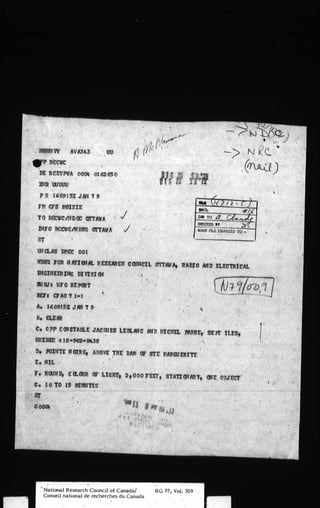 → NRC
(mail)
PP RCCWC
DE RCEVPVA 0004 0162050
ZNR UUUUU
P R 160915Z JAN 79
FM CFS MOISIE
INFO RCCWC/NDHQ OTTAWA
BT
UNCLAS OPCC 001
FOR NATIONAL RESEARCH COUNCIL OTTAWA, RADIO AND ELECTRICAL
ENGINEERING DIVISION
SUBJ: UFO REPORT
REF: CFAO 71-1
N79/009
A. 160915Z JAN 79
B. CLEAR
C. QPP CONSTABLE JACQUES LEBLANC AND MICHEL SEPT ILES,
QUEBEC 418-962-9438
D. POINTE NOIRE, ABOVE THE DAM OF STE MARGUERITE
E. NIL
F. ROUND, COLOUR OF LIGHT, 3,000 FEET, STATIONARY, ONE OBJECT
G. 10 TO 15 MINUTES
BT
National Research Council of Canada/ RG 77, Vol. 309
Conseil national de recherches du Canada